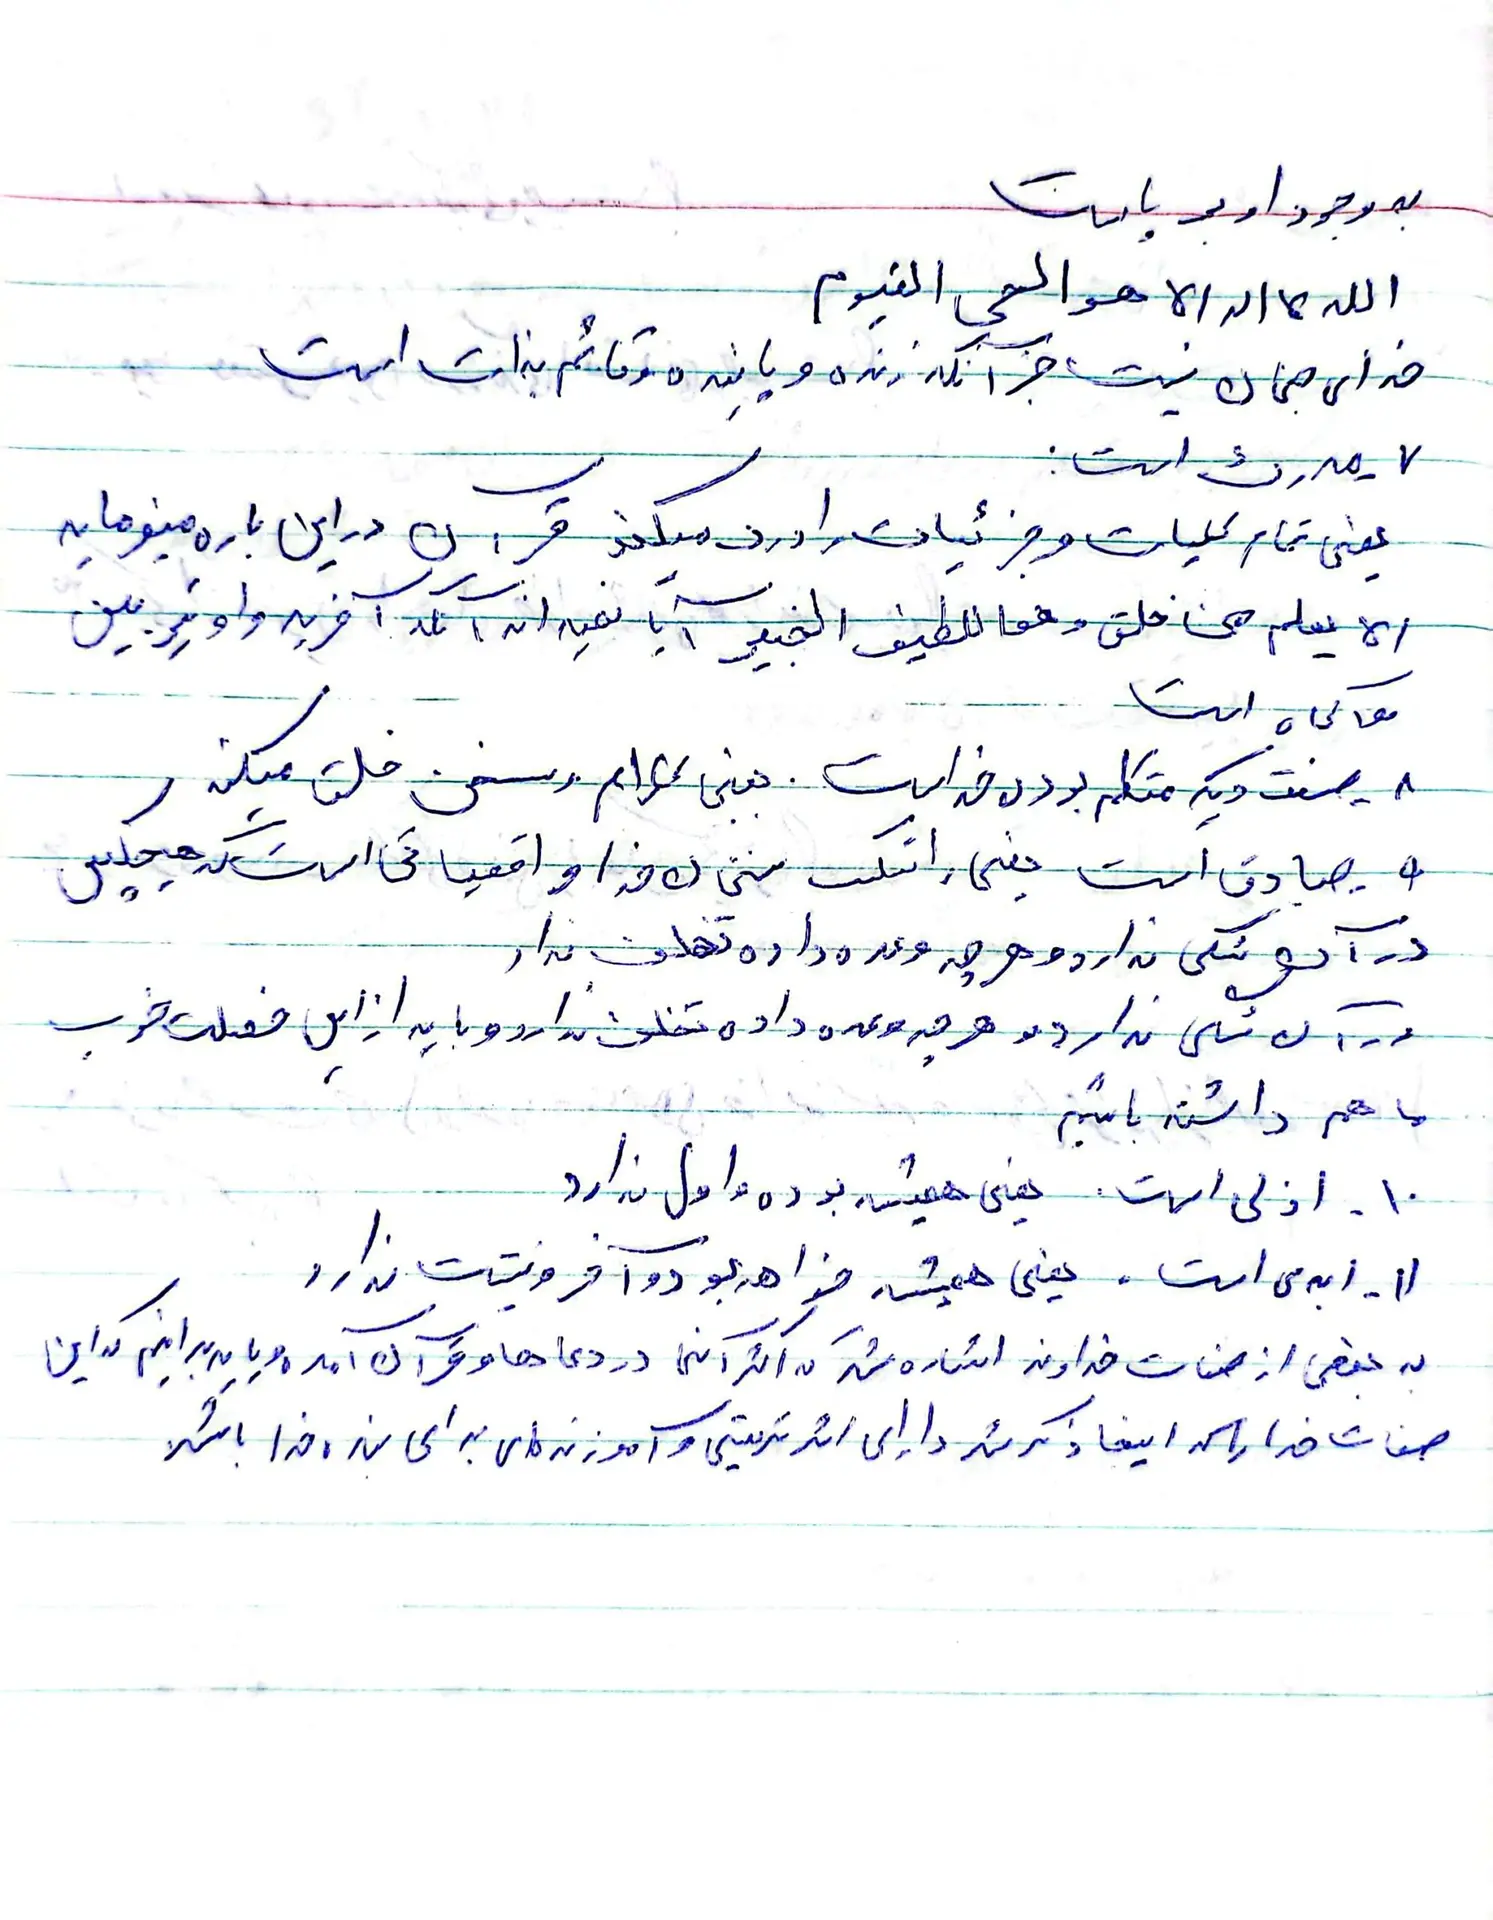 به وجود او بر پا است
الله لا اله الا هو الحی القیوم
خدای جهان نیست جز آنکه زنده و پاینده و قائم بذات است
۷ـ مدرک است:
یعنی تمام کلیات و جزئیات را درک میکند قرآن در این باره میفرماید
الا یعلم من خلق و هو اللطیف الخبیر آیا نمیداند آنکه آفرید و او تیزبین
و آگاه است
۸ـ صفت دیگر متکلم بودن خداست. یعنی کلام و سخن خلق میکند
۹ـ صادق است یعنی راستگو سخنان خدا واقعیاتی است که هیچکس
در آن شکی ندارد و هر چه وعده داده تخلف ندار
در آن شکی ندارد و هر چه وعده داده تخلف ندارد و باید از این خصلت خوب
ما هم داشته باشیم
۱۰ـ ازلی است. یعنی همیشه بوده و اول ندارد
۱۱ـ ابدی است. یعنی همیشه خواهد بود و آخر و نیست ندارد
به بعضی از صفات خداوند اشاره شد که اکثر آنها در دعاها و قرآن آمده و باید بدانیم که این
صفات خدا که اینجا ذکر شد دارای اثر تربیتی و آموزنده‌ای برای بنده خدا باشد